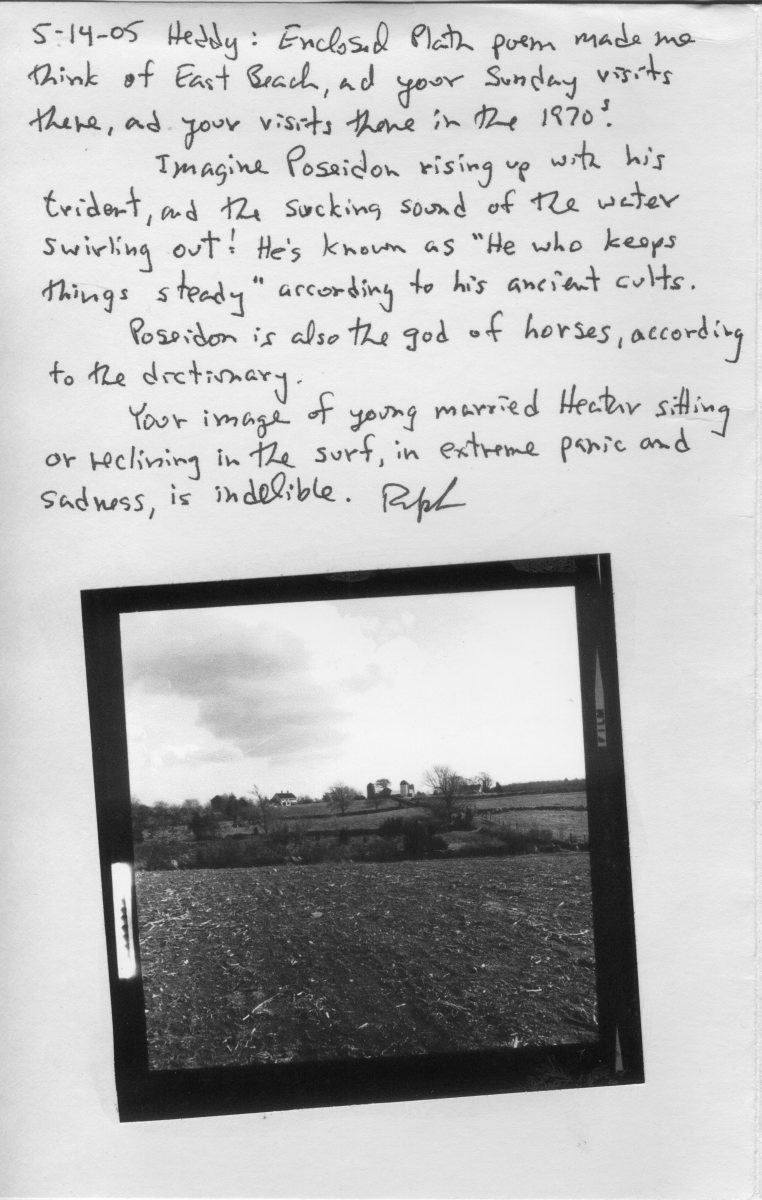 5-14-05 Heddy: Enclosed Plath poem made me
think of East Beach, ad your Sunday visits
there, and your visits there in the 1970s.
Imagine Poseidon rising up with his
trident, and the sucking sound of the water
swirling out! He's known as "He who keeps
things steady" according to his ancient cults.
Poseidon is also the god of horses, according
to the dictionary.
Your image of young married Heather sitting
or reclining in the surf, in extreme panic and
sadness, is indelible. Ralph